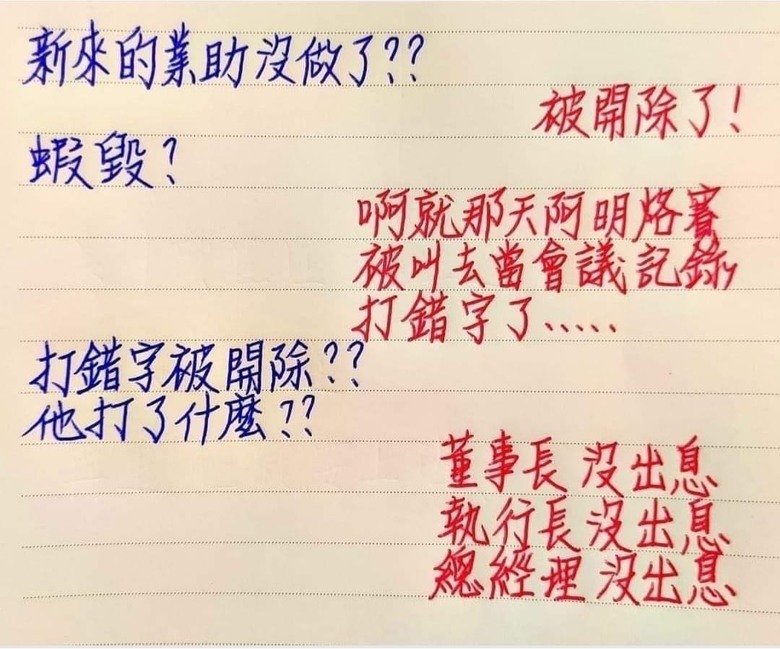 新來的業助沒做了??
被開除了!
蝦毀?
啊就那天阿明烙賽
被叫去當會議記錄
打錯字了.....
打錯字被開除??
他打了什麼??
董事長 沒出息
執行長 沒出息
總經理 沒出息